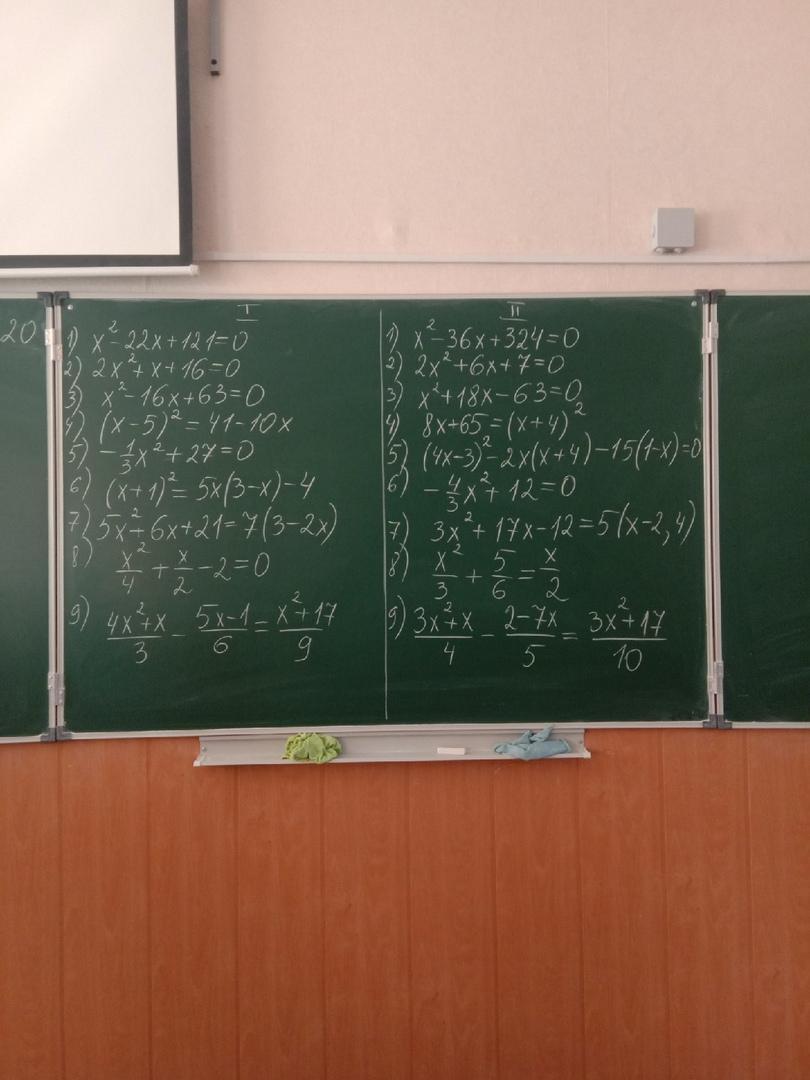 20
I
1) x²-22x+121=0
2) 2x²+x+16=0
3) x²-16x+63=0
4) (x-5)²=41-10x
5) -1/3x²+27=0
6) (x+1)²=5x(3-x)-4
7) 5x²+6x+21=7(3-2x)
8) x²/4+x/2-2=0
9) (4x²+x)/3-(5x-1)/6=(x²+17)/9
II
1) x²-36x+324=0
2) 2x²+6x+7=0
3) x²+18x-63=0
4) 8x+65=(x+4)²
5) (4x-3)²-2x(x+4)-15(1-x)=0
6) -4/3x²+12=0
7) 3x²+17x-12=5(x-2,4)
8) x²/3+5/6=x/2
9) (3x²+x)/4-(2-7x)/5=(3x²+17)/10